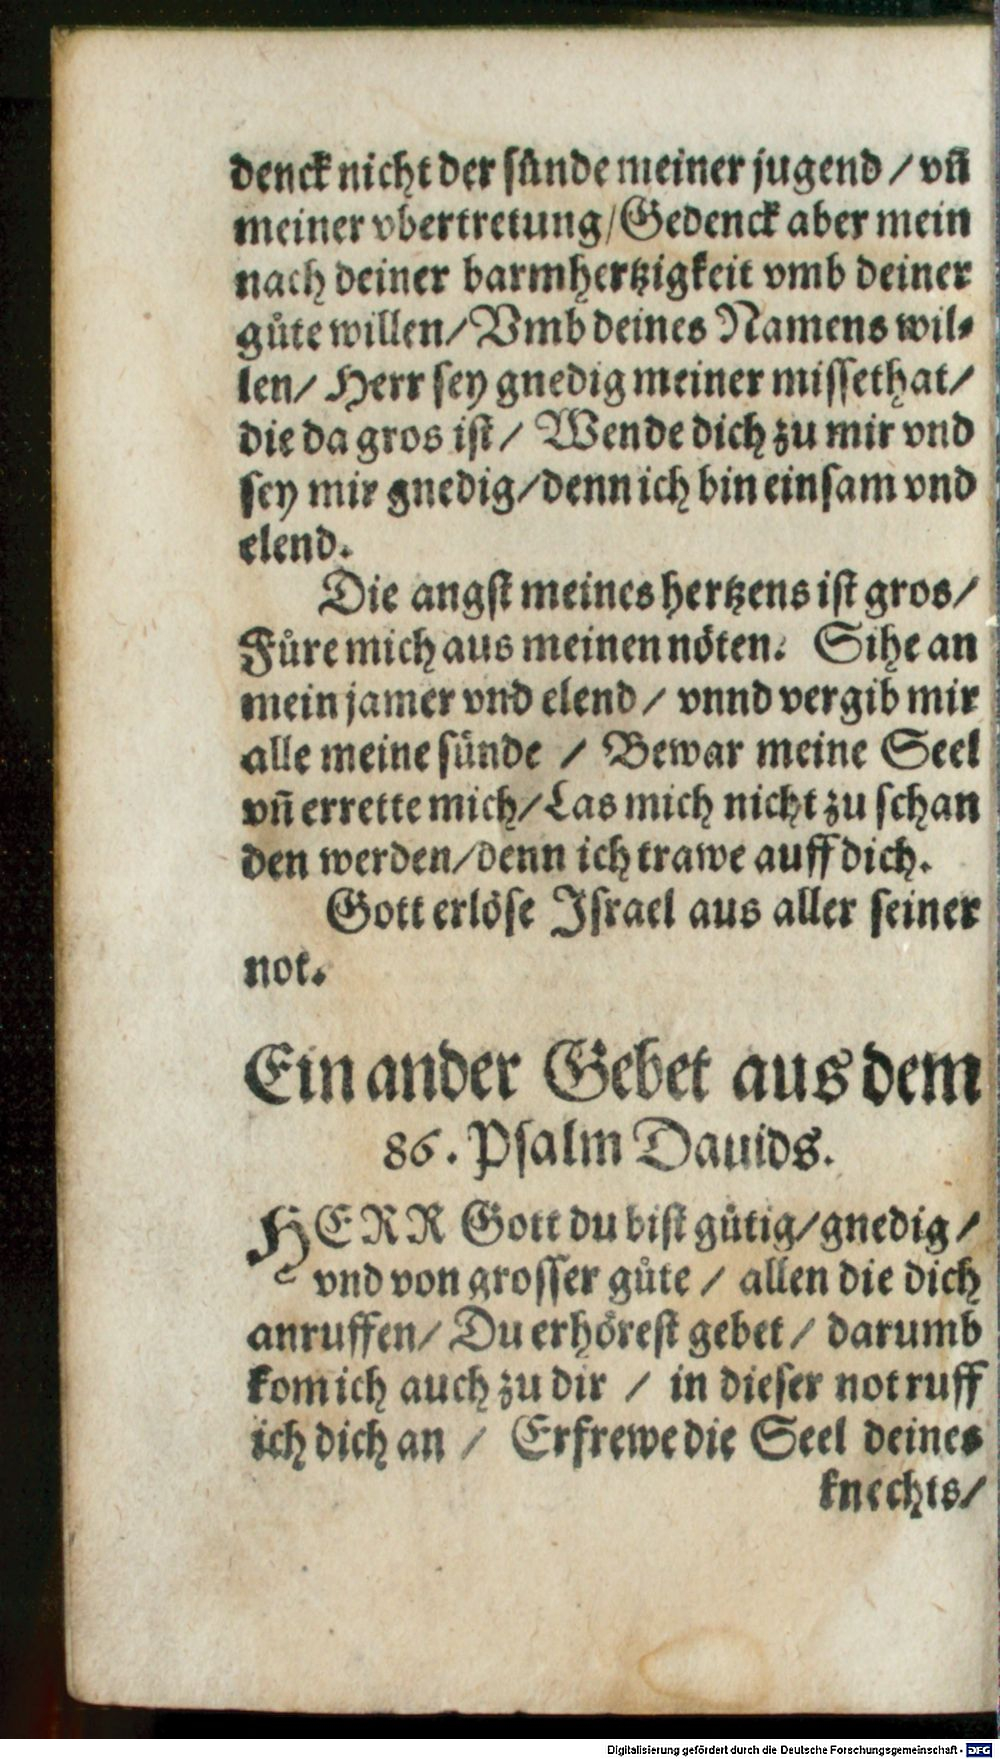 denck nicht der sünde meiner jugend / vn̄
meiner vbertretung / Gedenck aber mein
nach deiner barmhertzigkeit vmb deiner
gůte willen / Vmb deines Namens wil⸗
len / Herr sey gnedig meiner missethat /
die da gros ist / Wende dich zu mir vnd
sey mir gnedig / denn ich bin einsam vnd
elend.
Die angst meines hertzens ist gros /
Fůre mich aus meinen nöten. Sihe an
mein jamer vnd elend / vnnd vergib mir
alle meine sünde / Bewar meine Seel
vn̄ errette mich / Las mich nicht zu schan
den werden / denn ich trawe auff dich.
Gott erlöse Israel aus aller seiner
not.
Ein ander Gebet aus dem
86. Psalm Dauids.
HERR Gott du bist gütig / gnedig /
vnd von grosser gůte / allen die dich
anruffen / Du erhörest gebet / darumb
kom ich auch zu dir / in dieser not ruff
ich dich an / Erfrewe die Seel deines
knechts /
Digitalisierung gefördert durch die Deutsche Forschungsgemeinschaft - DFG